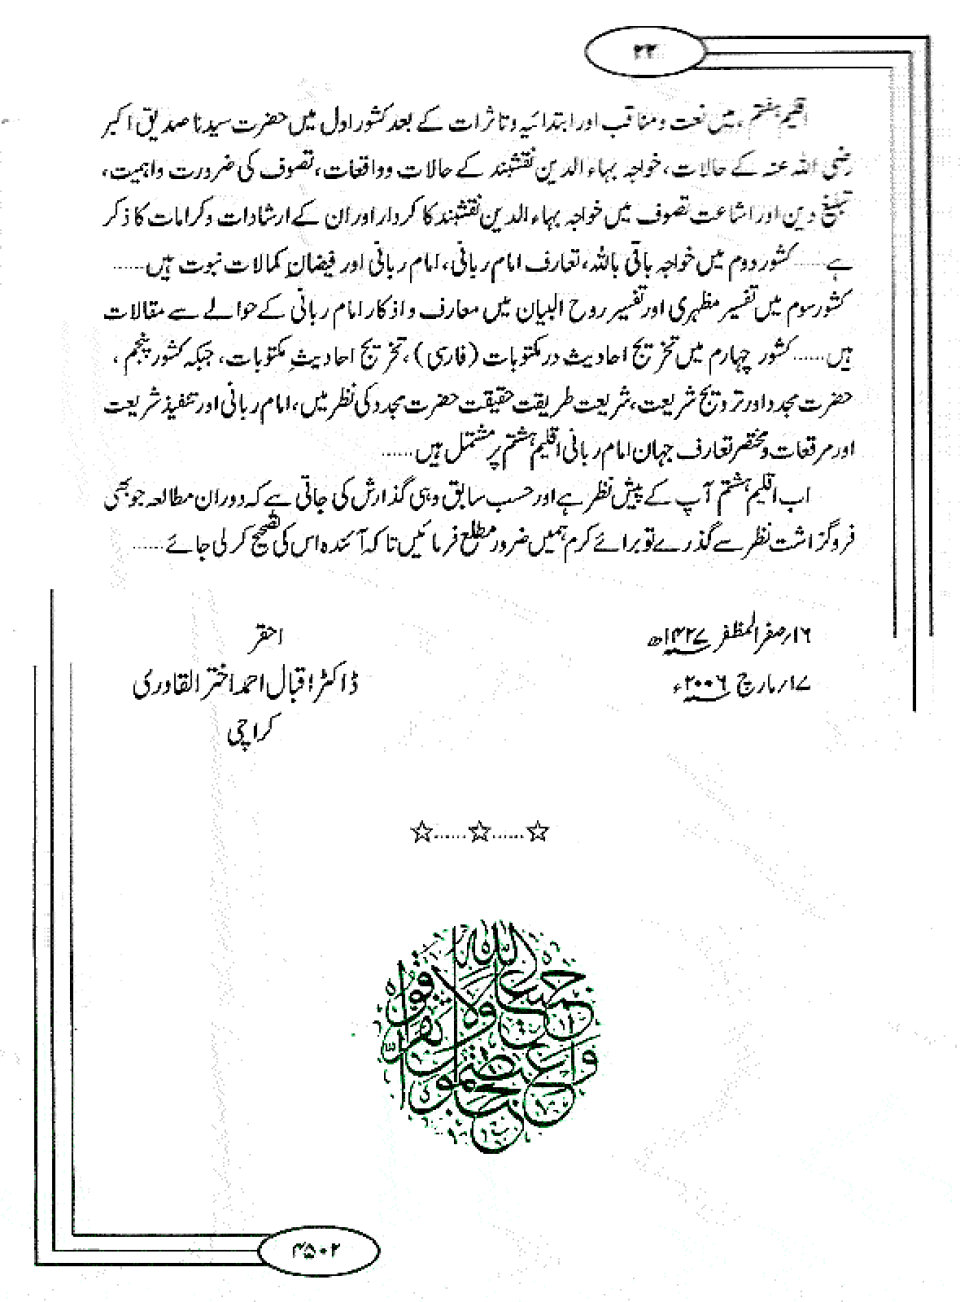 ۲۲
اقلیم ہفتم، میں نعت و مناقب اور ابتدائیہ و تاثرات کے بعد کشور اول میں حضرت سیدنا صدیق اکبر
رضی اللہ عنہ کے حالات، خواجہ بہاء الدین نقشبند کے حالات و واقعات، تصوف کی ضرورت و اہمیت،
تبلیغ دین اور اشاعت تصوف میں خواجہ بہاء الدین نقشبند کا کردار اور ان کے ارشادات و کرامات کا ذکر
ہے...... کشور دوم میں خواجہ باقی باللہ، تعارف امام ربانی، امام ربانی اور فیضانِ کمالات نبوت ہیں......
کشور سوم میں تفسیر مظہری اور تفسیر روح البیان میں معارف و اذکار امام ربانی کے حوالے سے مقالات
ہیں...... کشور چہارم میں تخریج احادیث در مکتوبات (فارسی)، تخریج احادیثِ مکتوبات، جبکہ کشور پنجم،
حضرت مجدد اور ترویج شریعت، شریعت طریقت حقیقت حضرت مجدد کی نظر میں، امام ربانی اور تنفیذ شریعت
اور مرقعات و مختصر تعارف جہان امام ربانی اقلیم ہشتم پر مشتمل ہیں......
اب اقلیم ہشتم آپ کے پیش نظر ہے اور حسب سابق وہی گذارش کی جاتی ہے کہ دوران مطالعہ جو بھی
فروگزاشت نظر سے گذرے تو برائے کرم ہمیں ضرور مطلع فرمائیں تاکہ آئندہ اس کی تصحیح کر لی جائے......
۱۶/صفر المظفر ۱۴۲۷ھ
احقر
۱۷/مارچ ۲۰۰۶ء
ڈاکٹر اقبال احمد اختر القادری
کراچی
☆......☆......☆
واعتصموا بحبل الله جميعا ولا تفرقوا
۴۵۰۲